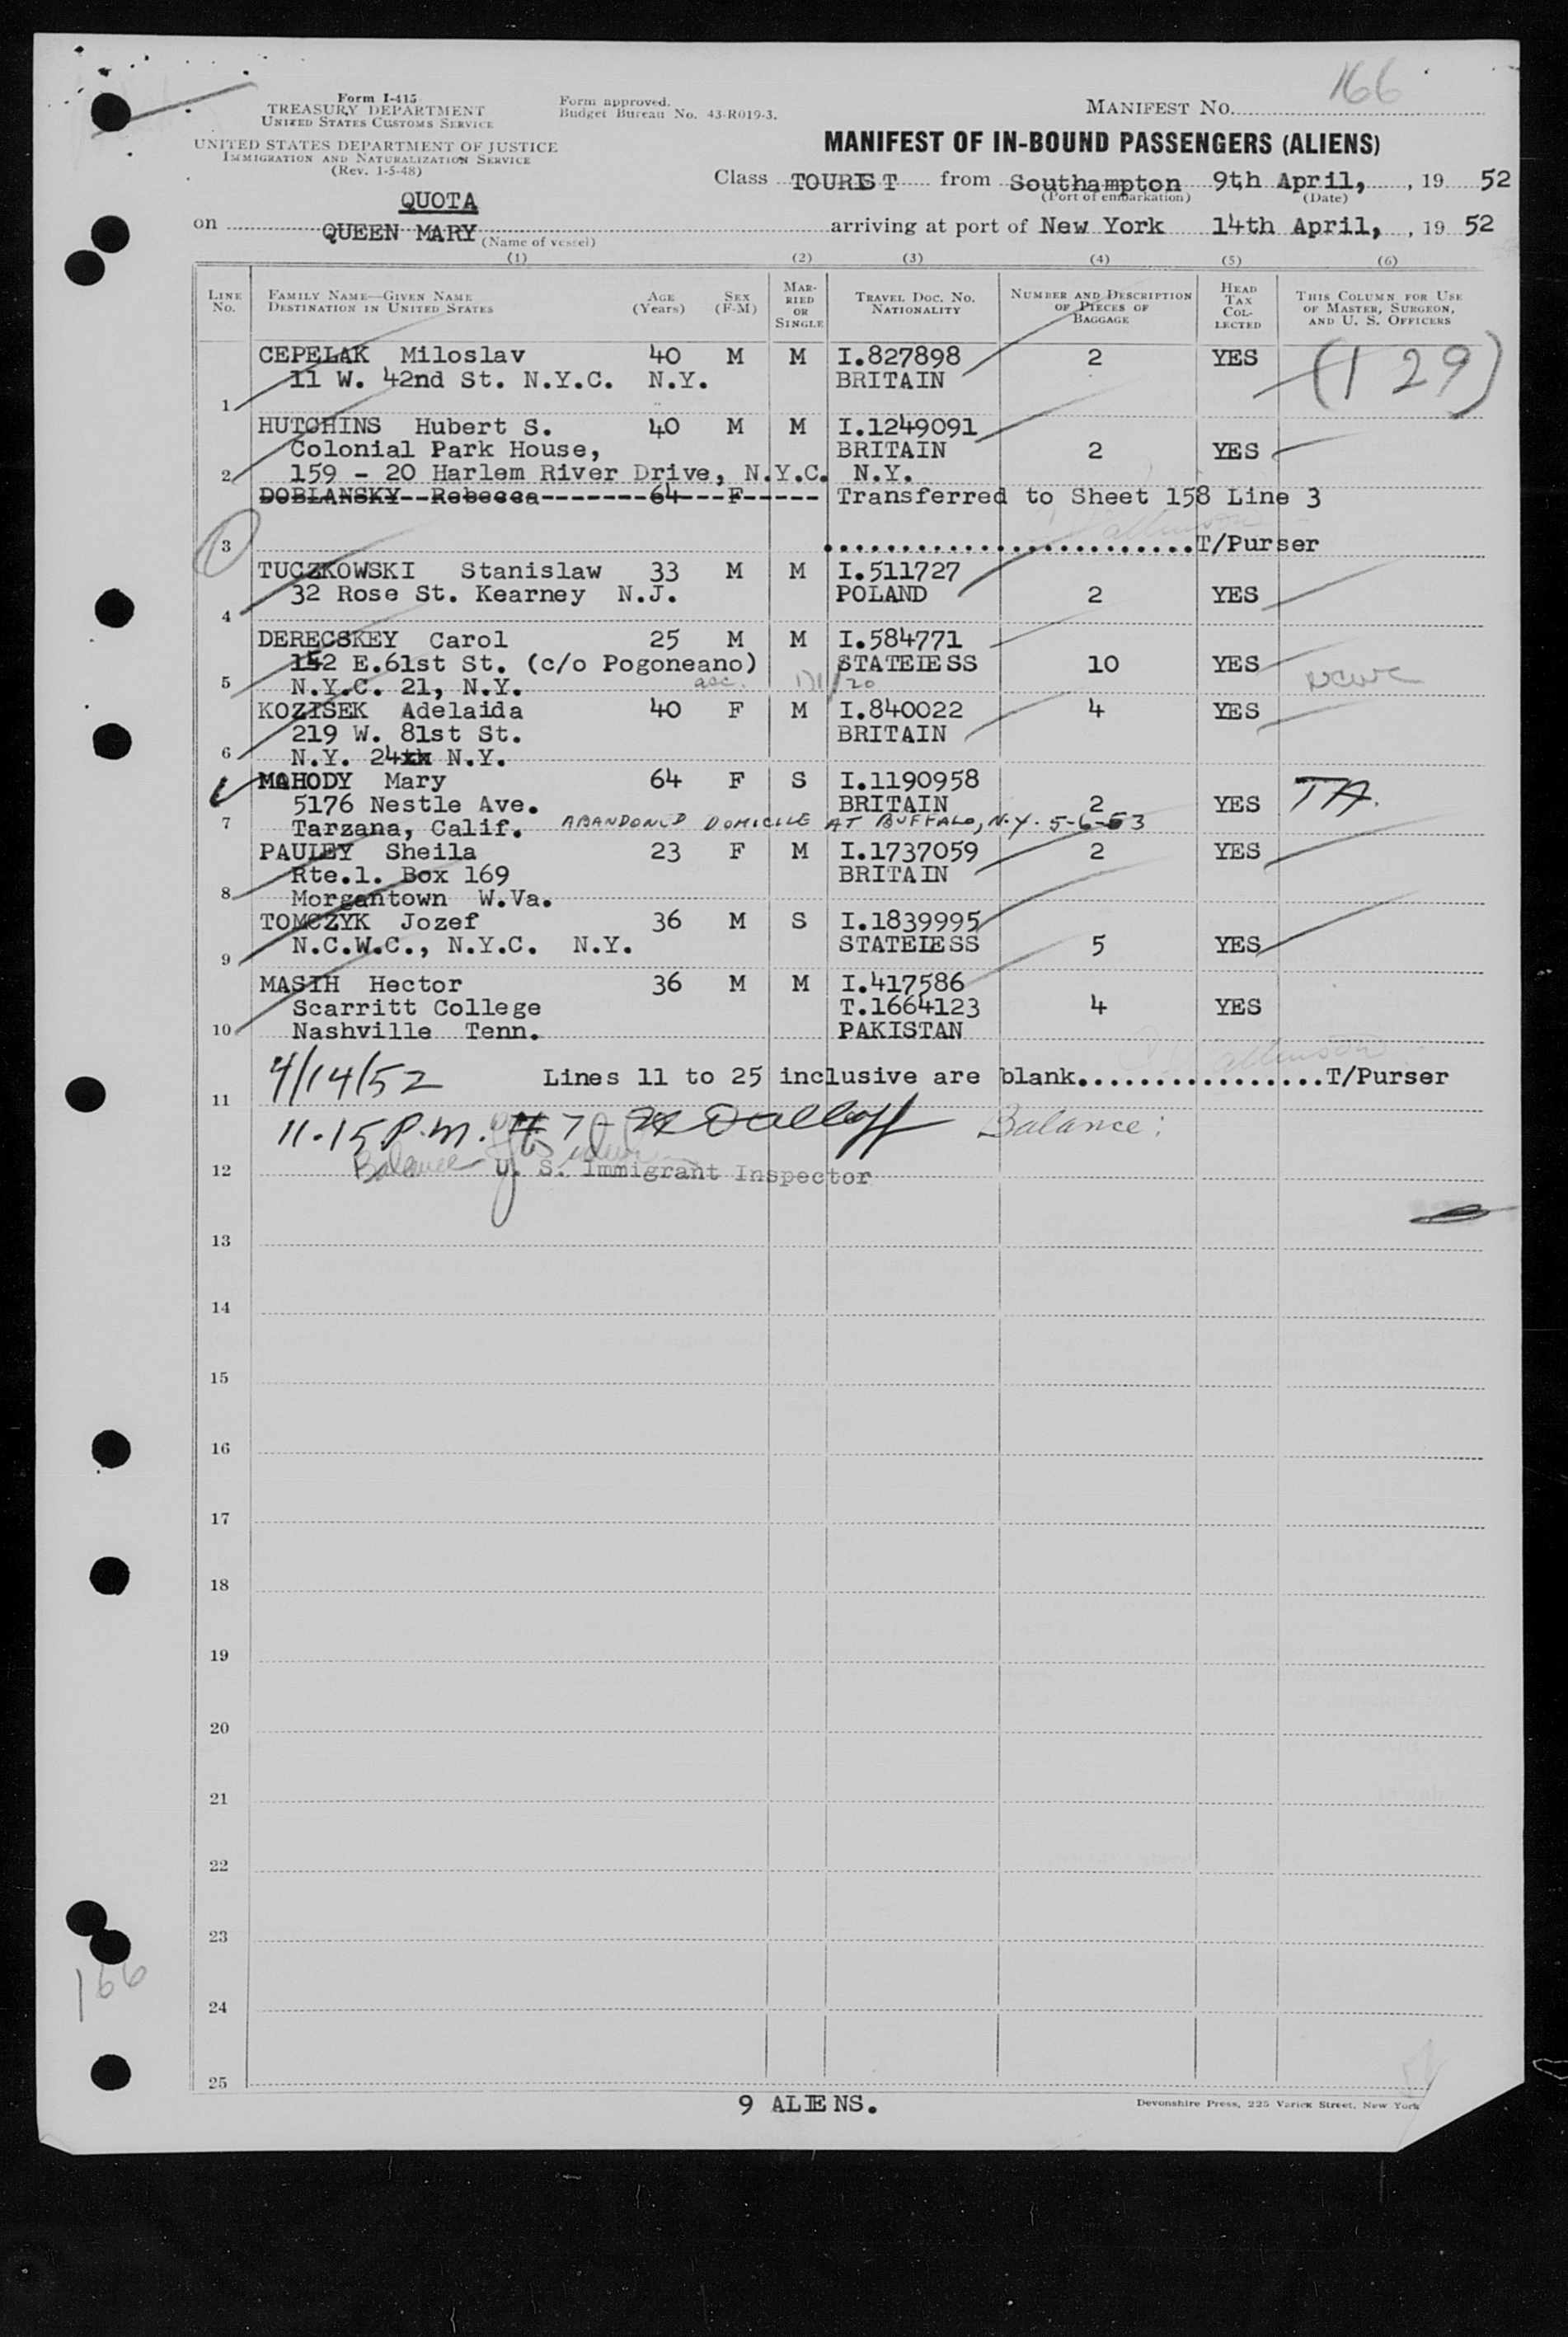 166
Form I-415
TREASURY DEPARTMENT
UNITED STATES CUSTOMS SERVICE
Form approved.
Budget Bureau No. 43-R019-3.
MANIFEST NO.
UNITED STATES DEPARTMENT OF JUSTICE
IMMIGRATION AND NATURALIZATION SERVICE
(Rev. 1-5-48)
MANIFEST OF IN-BOUND PASSENGERS (ALIENS)
Class TOURIST from Southampton 9th April, , 19 52
(Port of embarkation) (Date)
QUOTA
on QUEEN MARY arriving at port of New York 14th April, , 19 52
(Name of vessel)
(1) (2) (3) (4) (5) (6)
LINE No. FAMILY NAME—GIVEN NAME DESTINATION IN UNITED STATES AGE (Years) SEX (F-M) MARRIED OR SINGLE TRAVEL DOC. NO. NATIONALITY NUMBER AND DESCRIPTION OF PIECES OF BAGGAGE HEAD TAX COLLECTED THIS COLUMN FOR USE OF MASTER, SURGEON, AND U. S. OFFICERS
CEPELAK Miloslav 40 M M I.827898 2 YES (129)
11 W. 42nd St. N.Y.C. N.Y. BRITAIN
1
HUTCHINS Hubert S. 40 M M I.1249091
Colonial Park House, BRITAIN 2 YES
2 159 - 20 Harlem River Drive, N.Y.C. N.Y.
DOBLANSKY--Rebecca-------64---F----- Transferred to Sheet 158 Line 3
3 ........................T/Purser
TUCZKOWSKI Stanislaw 33 M M I.511727
32 Rose St. Kearney N.J. POLAND 2 YES
4
DERECSKEY Carol 25 M M I.584771
152 E.61st St. (c/o Pogoneano) STATELESS 10 YES
5 N.Y.C. 21, N.Y.
KOZISEK Adelaida 40 F M I.840022 4 YES
219 W. 81st St. BRITAIN
6 N.Y. 24xx N.Y.
MAHODY Mary 64 F S I.1190958
5176 Nestle Ave. BRITAIN 2 YES TA.
7 Tarzana, Calif. ABANDONED DOMICILE AT BUFFALO, N.Y. 5-6-53
PAULEY Sheila 23 F M I.1737059 2 YES
Rte.1. Box 169 BRITAIN
8 Morgantown W.Va.
TOMCZYK Jozef 36 M S I.1839995
N.C.W.C., N.Y.C. N.Y. STATELESS 5 YES
9
MASIH Hector 36 M M I.417586
Scarritt College T.1664123 4 YES
10 Nashville Tenn. PAKISTAN
4/14/52 Lines 11 to 25 inclusive are blank.................T/Purser
11
11.15 P.m. # 7 - Balance:
12 Balance U. S. Immigrant Inspector
13
14
15
16
17
18
19
20
21
22
23
166
24
25
9 ALIENS.
Devonshire Press, 225 Varick Street, New York